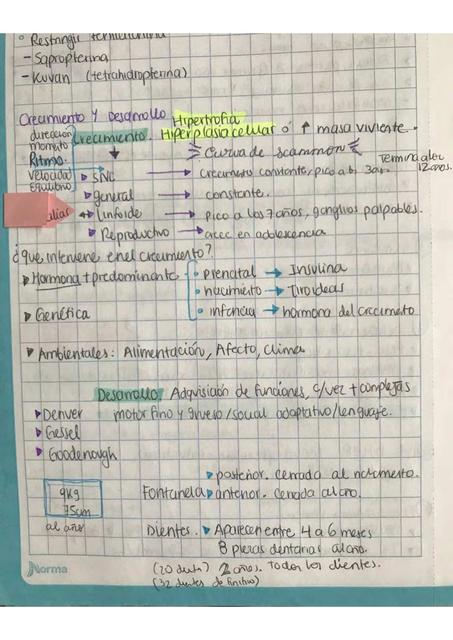 Restringir fenilalanina
- Sapropterina
- Kuvan (tetrahidropterina)
Crecimiento y Desarrollo
Hipertrofia
dirección
momento
Ritmo
velocidad
Equilibrio
Crecimiento. Hiperplasia celular ó ↑ masa viviente.
Curva de scammon
SNC → Crecimiento constante, pico a los 3años
Termina
12 anos.
general → constante.
linfoide → Pico a los 7 años, ganglios palpables.
Reproductivo → en adolescencia
¿que interviene en el crecimiento?
Hormona + predominante
prenatal → Insulina
nacimiento → Tiroideas
infancia → hormona del crecimiento
Genética
Ambientales: Alimentación, Afecto, Clima
Desarrollo: Adqvisición de funciones, c/vez + complejas
motor fino y grueso/social adaptativo/lenguaje.
Denver
Gessel
Goodenough
posterior. cerrada al nacimiento.
Fontanela
anterior. cerrada al año.
9kg
75cm
al año
Dientes. Aparecen entre 4 a 6 meses
8 piezas dentarias al año.
Norma
2 años. Todos los dientes.